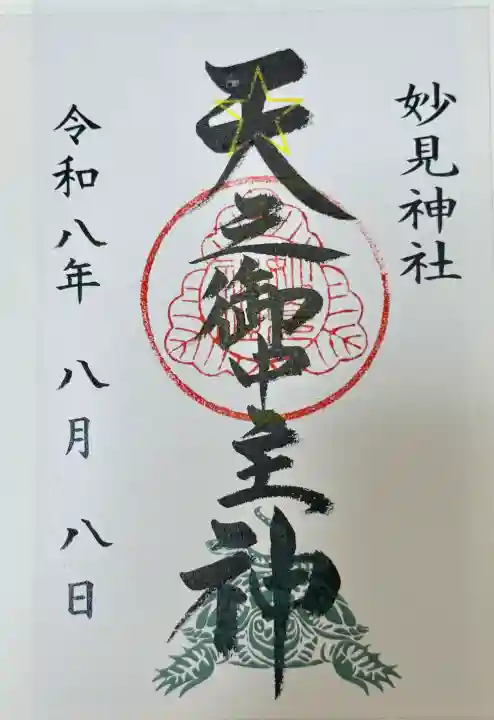 妙見神社
天之御中主神
令和八年 八月 八日